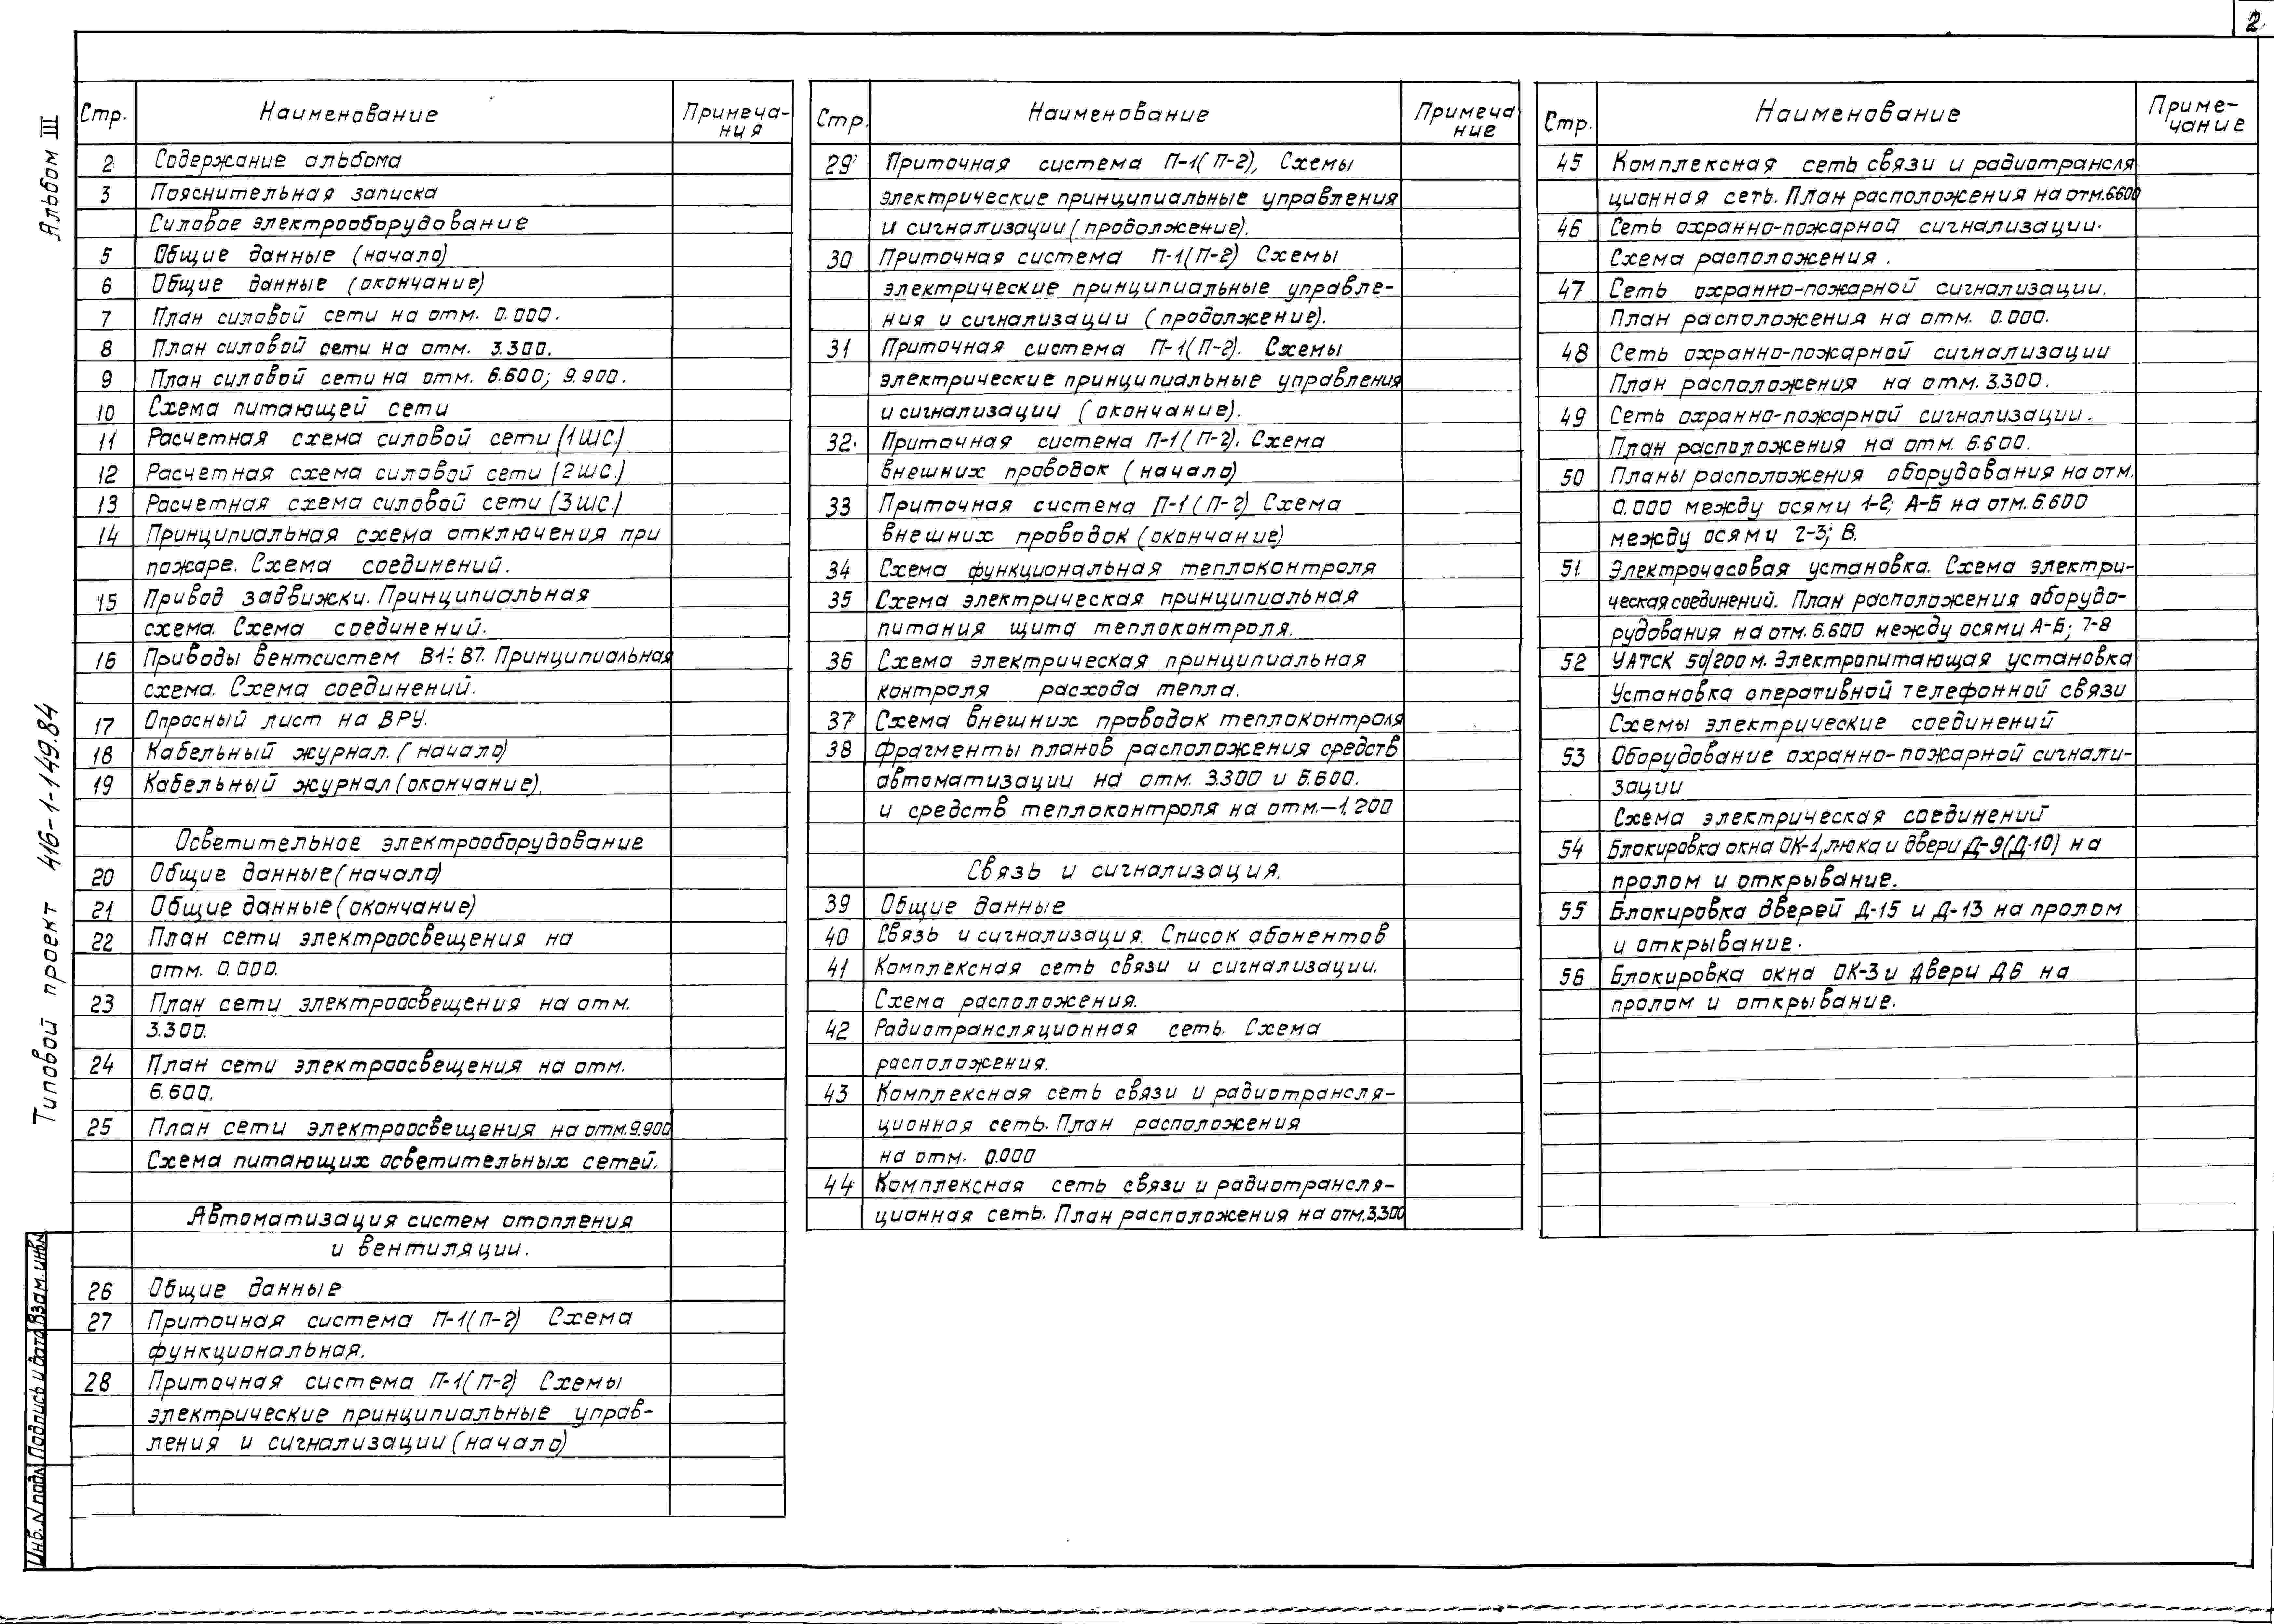 2.
Альбом III
Типовой проект 416-1-149.84
Инв. N подл Подпись и дата Взам. инв.
Стр. Наименование Примеча-
ния
2 Содержание альбома
3 Пояснительная записка
Силовое электрооборудование
5 Общие данные (начало)
6 Общие данные (окончание)
7 План силовой сети на отм. 0.000.
8 План силовой сети на отм. 3.300.
9 План силовой сети на отм. 6.600; 9.900.
10 Схема питающей сети
11 Расчетная схема силовой сети (1ШС.)
12 Расчетная схема силовой сети (2ШС.)
13 Расчетная схема силовой сети (3ШС.)
14 Принципиальная схема отключения при
пожаре. Схема соединений.
15 Привод задвижки. Принципиальная
схема. Схема соединений.
16 Приводы вентсистем В1÷В7. Принципиальная
схема. Схема соединений.
17 Опросный лист на ВРУ.
18 Кабельный журнал. (начало)
19 Кабельный журнал (окончание).
Осветительное электрооборудование
20 Общие данные (начало)
21 Общие данные (окончание)
22 План сети электроосвещения на
отм. 0.000.
23 План сети электроосвещения на отм.
3.300.
24 План сети электроосвещения на отм.
6.600.
25 План сети электроосвещения на отм. 9.900
Схема питающих осветительных сетей.
Автоматизация систем отопления
и вентиляции.
26 Общие данные
27 Приточная система П-1(П-2) Схема
функциональная.
28 Приточная система П-1(П-2) Схемы
электрические принципиальные управ-
ления и сигнализации (начало)
Стр. Наименование Примеча
ние
29 Приточная система П-1(П-2), Схемы
электрические принципиальные управления
и сигнализации (продолжение).
30 Приточная система П-1(П-2) Схемы
электрические принципиальные управле-
ния и сигнализации (продолжение).
31 Приточная система П-1(П-2). Схемы
электрические принципиальные управления
и сигнализации (окончание).
32. Приточная система П-1(П-2). Схема
внешних проводок (начало)
33 Приточная система П-1(П-2) Схема
внешних проводок (окончание)
34 Схема функциональная теплоконтроля
35 Схема электрическая принципиальная
питания щита теплоконтроля.
36 Схема электрическая принципиальная
контроля расхода тепла.
37 Схема внешних проводок теплоконтроля
38 Фрагменты планов расположения средств
автоматизации на отм. 3.300 и 6.600.
и средств теплоконтроля на отм. –1.200
Связь и сигнализация.
39 Общие данные
40 Связь и сигнализация. Список абонентов
41 Комплексная сеть связи и сигнализации.
Схема расположения.
42 Радиотрансляционная сеть. Схема
расположения.
43 Комплексная сеть связи и радиотрансля-
ционная сеть. План расположения
на отм. 0.000
44 Комплексная сеть связи и радиотрансля-
ционная сеть. План расположения на отм. 3,300
Стр. Наименование Приме-
чание
45 Комплексная сеть связи и радиотрансля
ционная сеть. План расположения на отм. 6.600
46 Сеть охранно-пожарной сигнализации.
Схема расположения.
47 Сеть охранно-пожарной сигнализации.
План расположения на отм. 0.000.
48 Сеть охранно-пожарной сигнализации
План расположения на отм. 3.300.
49 Сеть охранно-пожарной сигнализации.
План расположения на отм. 6.600.
50 Планы расположения оборудования на отм.
0.000 между осями 1-2; А-Б на отм. 6.600
между осями 2-3; В.
51 Электрочасовая установка. Схема электри-
ческая соединений. План расположения оборудо-
рудования на отм. 6.600 между осями А-Б; 7-8
52 УАТСК 50/200 м. Электропитающая установка
Установка оперативной телефонной связи
Схемы электрические соединений
53 Оборудование охранно-пожарной сигнали-
зации
Схема электрическая соединений
54 Блокировка окна ОК-1, люка и двери Д-9(Д-10) на
пролом и открывание.
55 Блокировка дверей Д-15 и Д-13 на пролом
и открывание.
56 Блокировка окна ОК-3 и двери Д6 на
пролом и открывание.